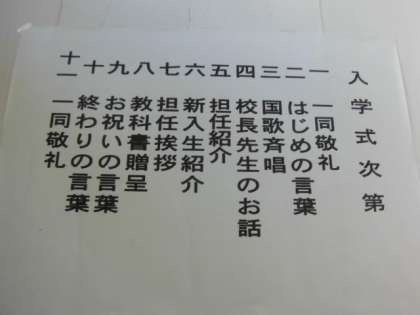 入学式次第
一 一同敬礼
二 はじめの言葉
三 国歌斉唱
四 校長先生のお話
五 担任紹介
六 新入生紹介
七 担任挨拶
八 教科書贈呈
九 お祝いの言葉
十 終わりの言葉
十一 一同敬礼